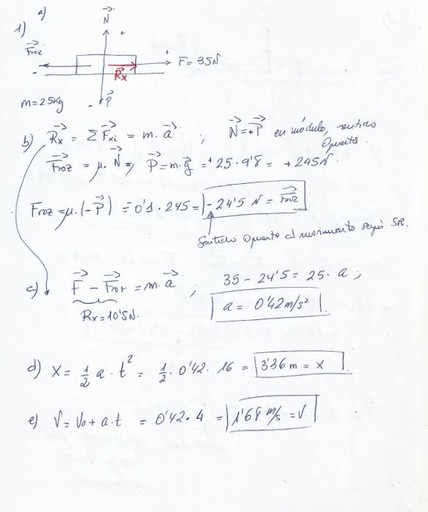 a)
1)
N
+
Froz
+
F = 35N
-
Rx
m=25kg
-
P
b) Rx = ΣFxi = m.a ; N=+P en módulo, sentido
opuesto.
Froz = μ.N ⇒ P=m.g = +25.9'8 = +245N.
Froz = μ.(-P) = 0'1.245 = -24'5 N = Froz
Sentido opuesto al movimiento según SR.
c) F - Froz = m.a ; 35 - 24'5 = 25.a ;
Rx = 10'5N. a = 0'42 m/s²
d) X = 1/2 a.t² = 1/2 . 0'42. 16 = 3'36 m = x
e) V = Vo + a.t = 0'42.4 = 1'68 m/s = V